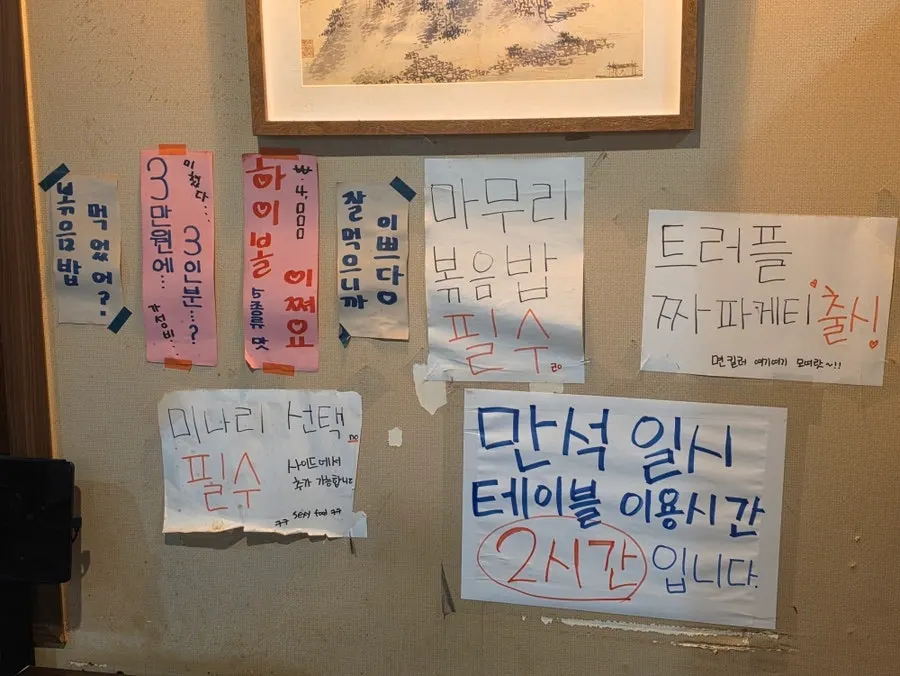 볶음밥
먹었어?
3만원에...
미쳤다...
3인분...?
하이볼
5종류 맛
₩.4,000
이쪄요
잘먹으니까
이쁘다
마무리
볶음밥
필수
트러플
짜파케티 출시!
면킬러 여기여기 모여랏~!!
미나리 선택
필수
사이드에서
추가 가능합니다
ㅋㅋ sexy food ㅋㅋ
만석 일시
테이블 이용시간
2시간 입니다.